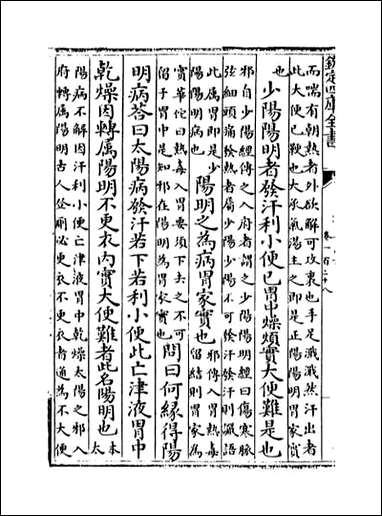 欽定四庫全書
卷一百二十八
而喘有潮熱者外欲解可攻裏也手足濈濈然汗出者
此大便已鞕也大承氣湯主之即是正陽陽明胃家實
也
少陽陽明者發汗利小便已胃中燥煩實大便難是也
邪自少陽經傳之入府者謂之少陽陽明經曰傷寒脉
弦細頭痛發熱者屬少陽少陽不可發汗發汗則讝語
此屬胃即是少
陽陽明病也
陽明之為病胃家實也
邪傳入胃熱毒
留結則胃家為
實華佗曰熱毒入胃要須下去之不可
留于胃中是知邪在陽明為胃家實也
問曰何緣得陽
明病答曰太陽病發汗若下若利小便此亡津液胃中
乾燥因轉屬陽明不更衣内實大便難者此名陽明也
本
太
陽病不解因汗利小便亡津液胃中乾燥太陽之邪入
府轉屬陽明古人登厠必更衣不更衣者通為不大便